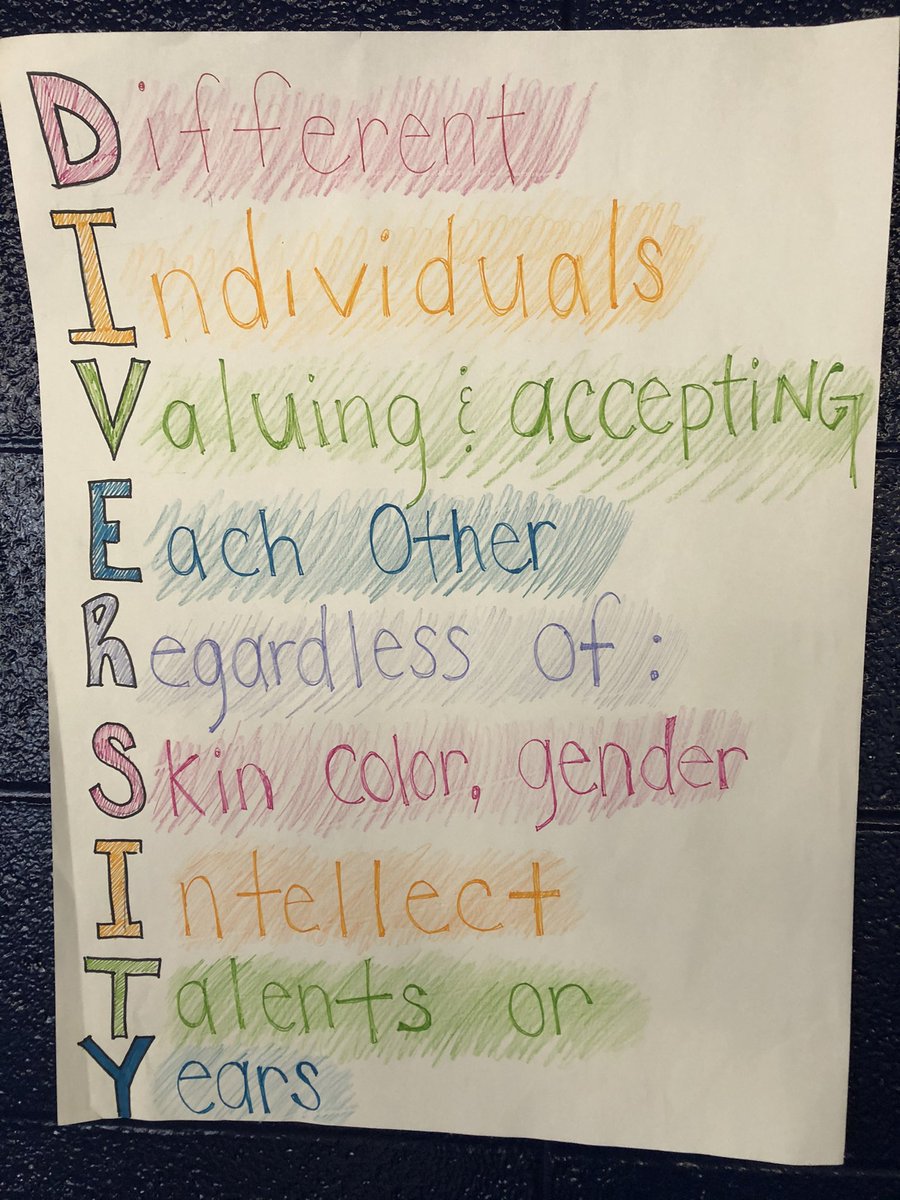 Different
Individuals
Valuing & accepting
Each Other
Regardless of:
Skin color, gender
Intellect
Talents or
Years